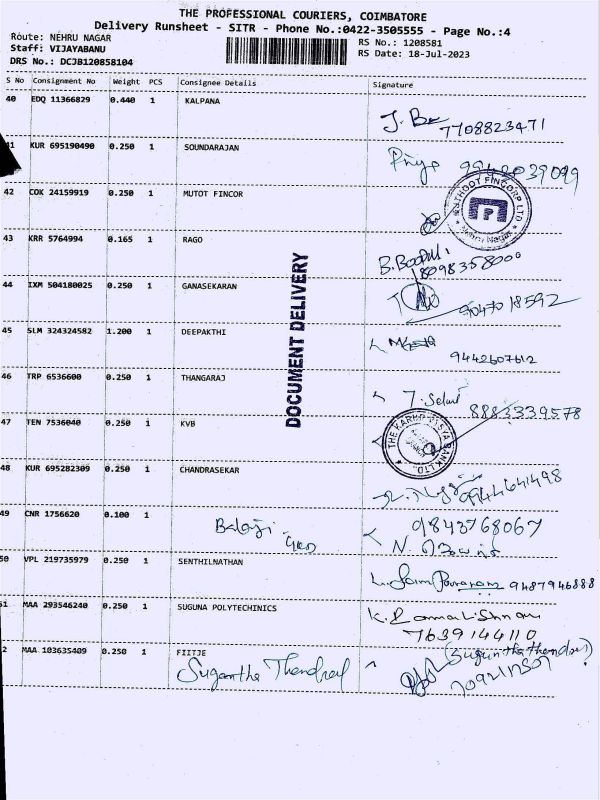 THE PROFESSIONAL COURIERS, COIMBATORE
Delivery Runsheet - SITR - Phone No.:0422-3505555 - Page No.:4
Route: NEHRU NAGAR
Staff: VIJAYABANU
RS No.: 1208581
DRS No.: DCJB120858104
RS Date: 18-Jul-2023
S No Consignment No Weight PCS Consignee Details Signature
40 EDQ 11366829 0.440 1 KALPANA
7708823471
41 KUR 695190490 0.250 1 SOUNDARAJAN
Priya
42 COK 24159919 0.250 1 MUTOT FINCOR
MUTHOOT FINCORP LTD
Nehru Nagar
43 KRR 5764994 0.165 1 RAGO
8098358000
44 IXM 504180025 0.250 1 GANASEKARAN
DOCUMENT DELIVERY
45 SLM 324324582 1.200 1 DEEPAKTHI
9442607612
46 TRP 6536600 0.250 1 THANGARAJ
J. Selvi
8883339578
47 TEN 7536040 0.250 1 KVB
THE KARUR VYSYA BANK LTD.
48 KUR 695282309 0.250 1 CHANDRASEKAR
9944641498
49 CNR 1756620 0.100 1
Balaji
9843768067
50 VPL 219735979 0.250 1 SENTHILNATHAN
9487946888
51 MAA 293546240 0.250 1 SUGUNA POLYTECHINICS
K. Ramakrishnan
7639144110
2 MAA 103635409 0.250 1 FIITJE
Sugantha Thendral